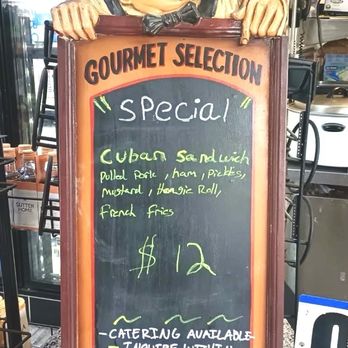 GOURMET SELECTION
" Special "
Cuban Sandwich
Pulled Pork, ham, Pickles,
Mustard, Hoagie Roll,
French Fries
$ 12
~ ~ ~
- CATERING AVAILABLE
- INQUIRE WITHIN
SUTTER
HOME